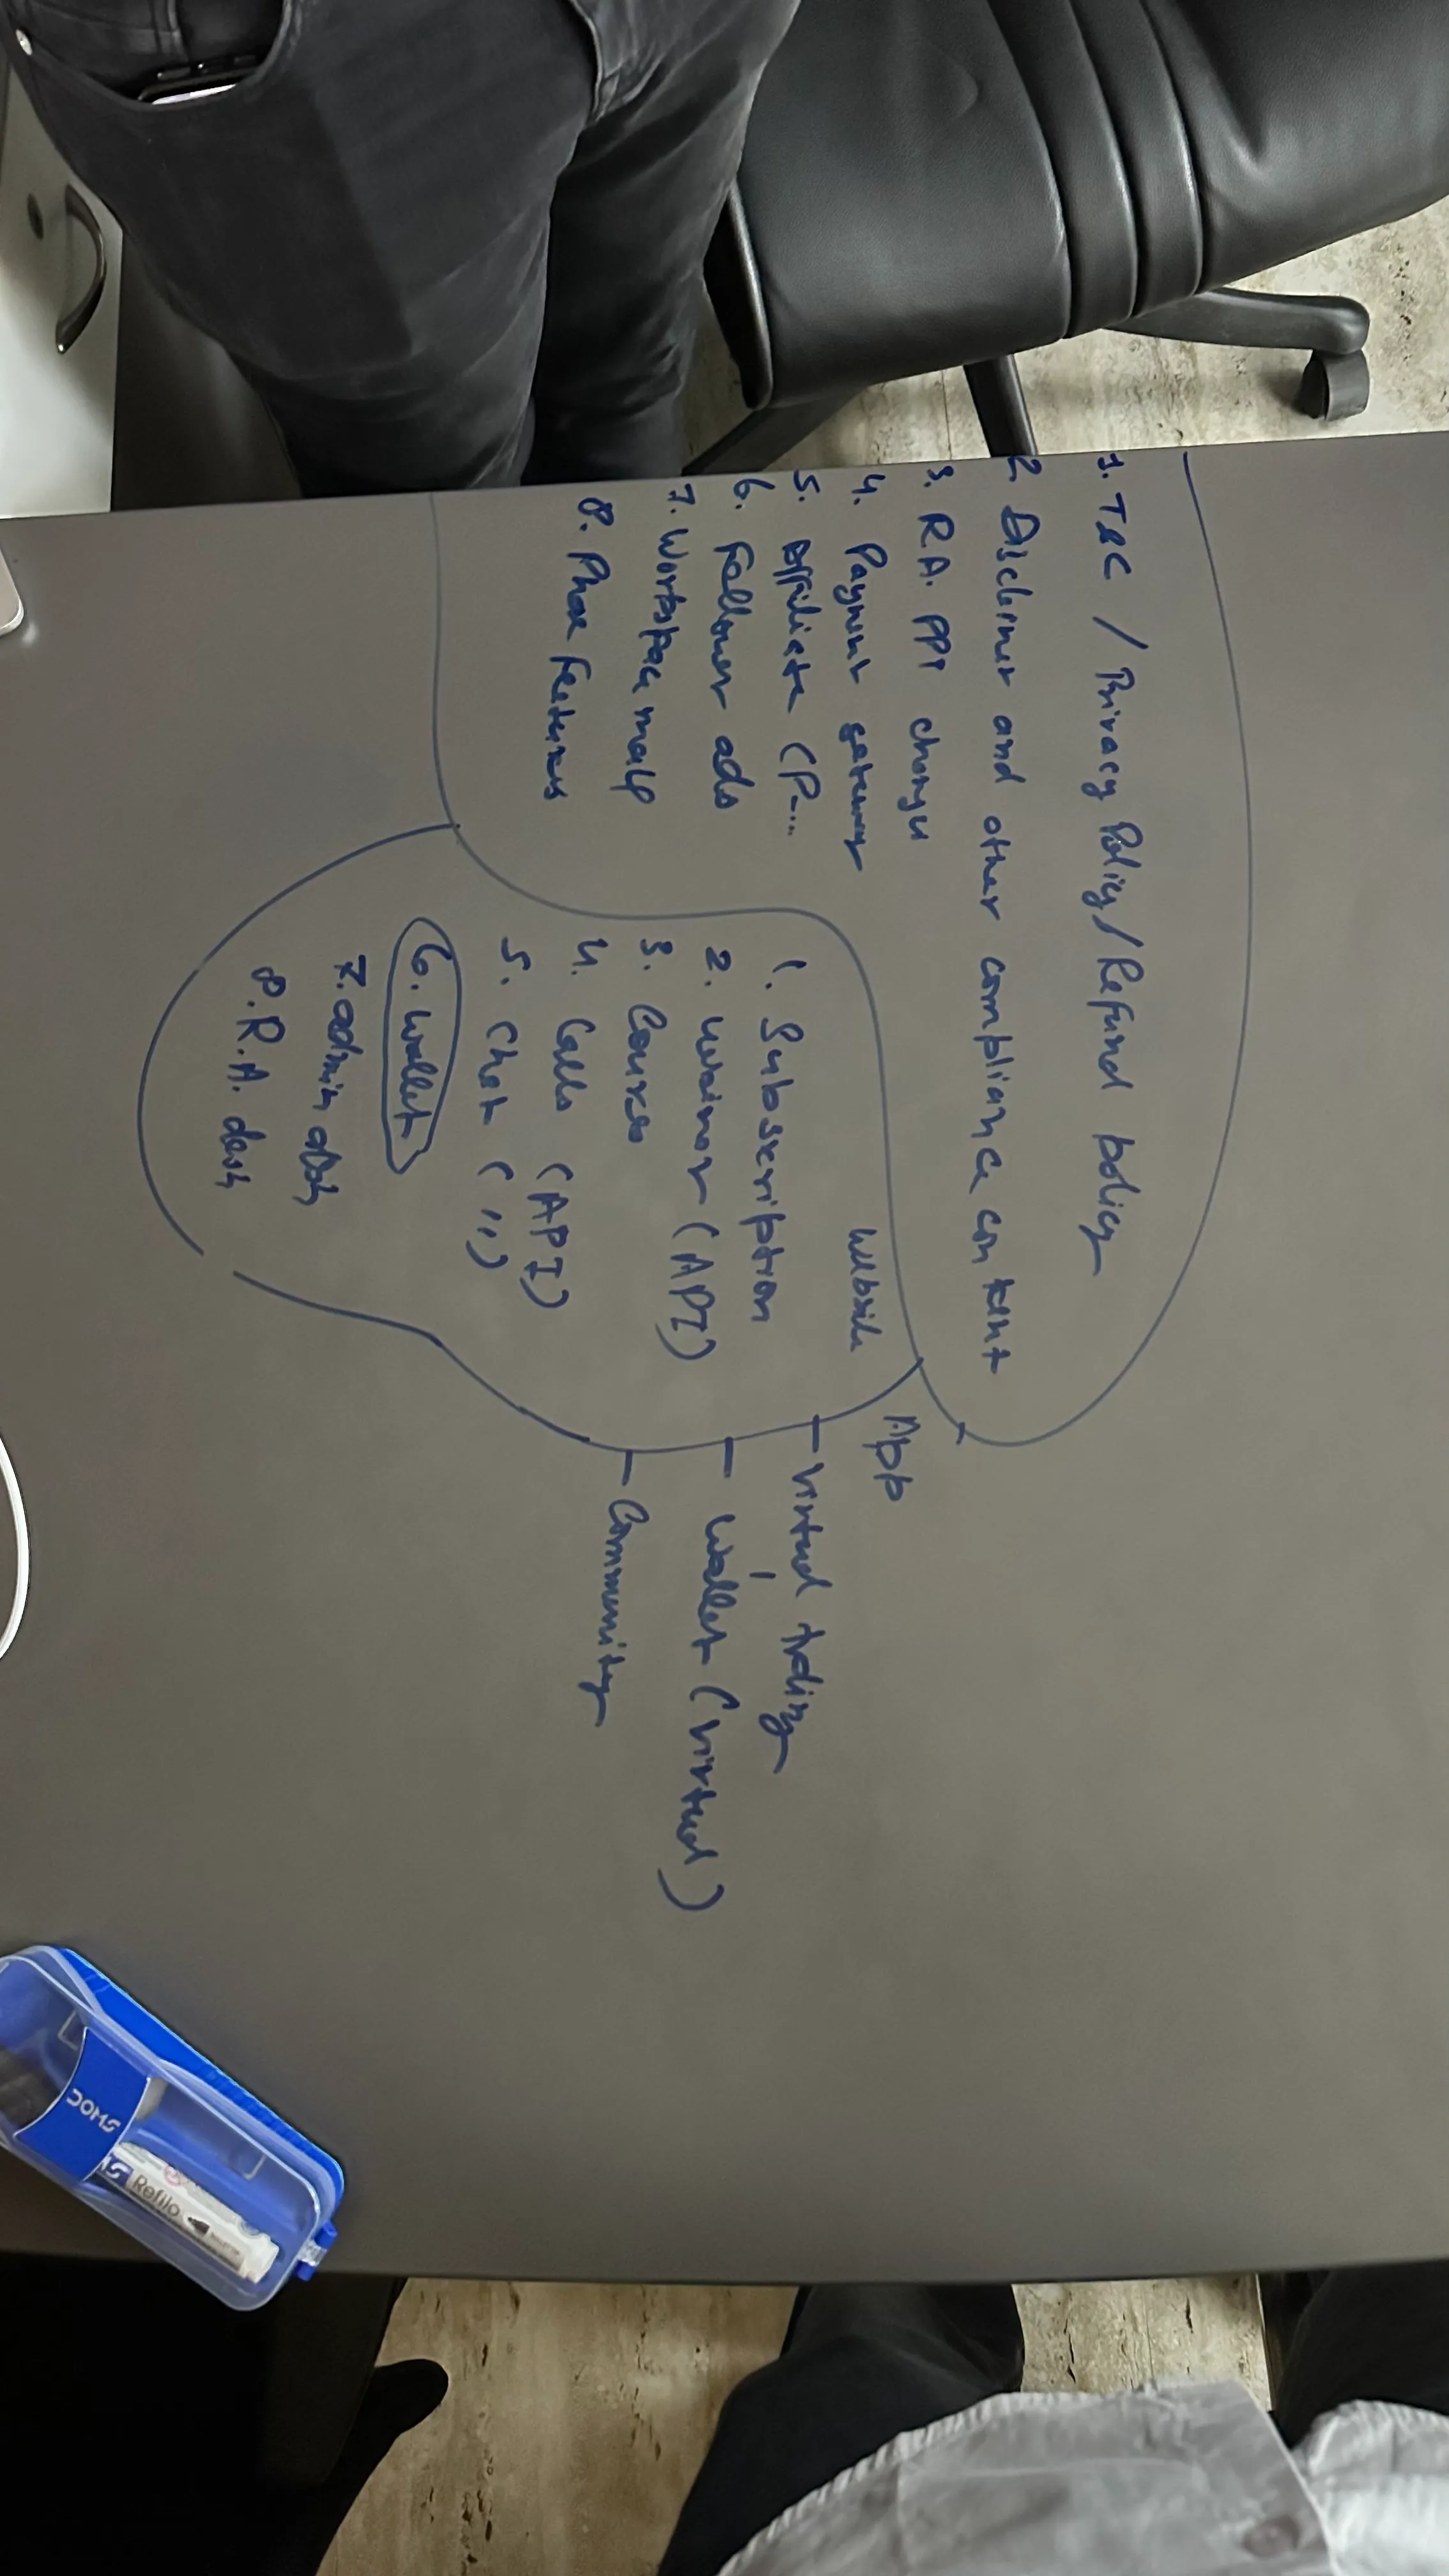 1. T&C / Privacy Policy / Refund policy
2. Disclimer and other compliance content
3. R.A. PPT changes
4. Payment gateway
5. Affiliate (P...
6. Follower ads
7. Workspace
8. Phase Features
Website
1. Subscription
2. Webinar (API)
3. Courses
4. Calls (API)
5. Chat ( '' )
6. Wallet
7. admin dash
8. R.A. dash
App
- Virtual trading
- Wallet (Virtual)
- Community
DOMS
Refilo